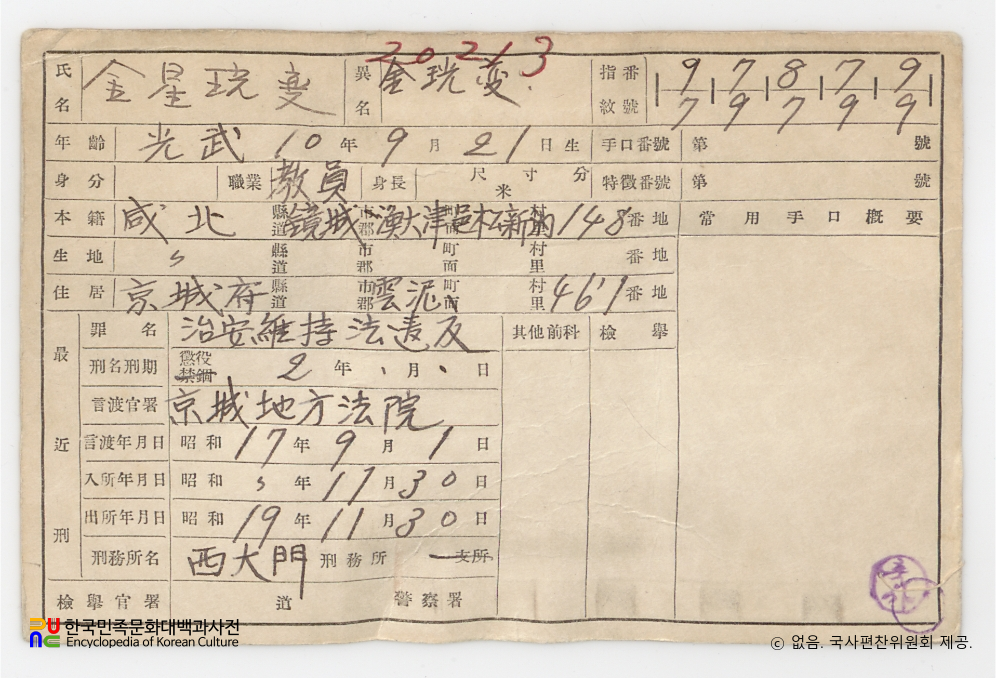 20213
氏名 金星珖變 異名 金珖變 指紋番號 9 7 8 7 9
7 9 7 9 9
年齡 光武 10年 9月 21日生 手口番號 第 號
身分 職業 教員 身長 尺 寸 分 米 特徵番號 第 號
本籍 咸北 縣道 鏡城 市郡 漁大津邑 町面 松新洞 村里 148番地 常用手口概要
生地 〃 縣道 市郡 町面 村里 番地
住居 京城府 縣道 市郡 雲泥 町面 村里 46 1番地
最近刑 罪名 治安維持法違反 其他前科 檢擧
刑名刑期 懲役 禁錮 2年 月 日
言渡官署 京城地方法院
言渡年月日 昭和 17年 9月 1日
入所年月日 昭和 〃年 11月 30日
出所年月日 昭和 19年 11月 30日
刑務所名 西大門 刑務所 支所
檢擧官署 道 警察署
한국민족문화대백과사전
Encyclopedia of Korean Culture
ⓒ 없음. 국사편찬위원회 제공.